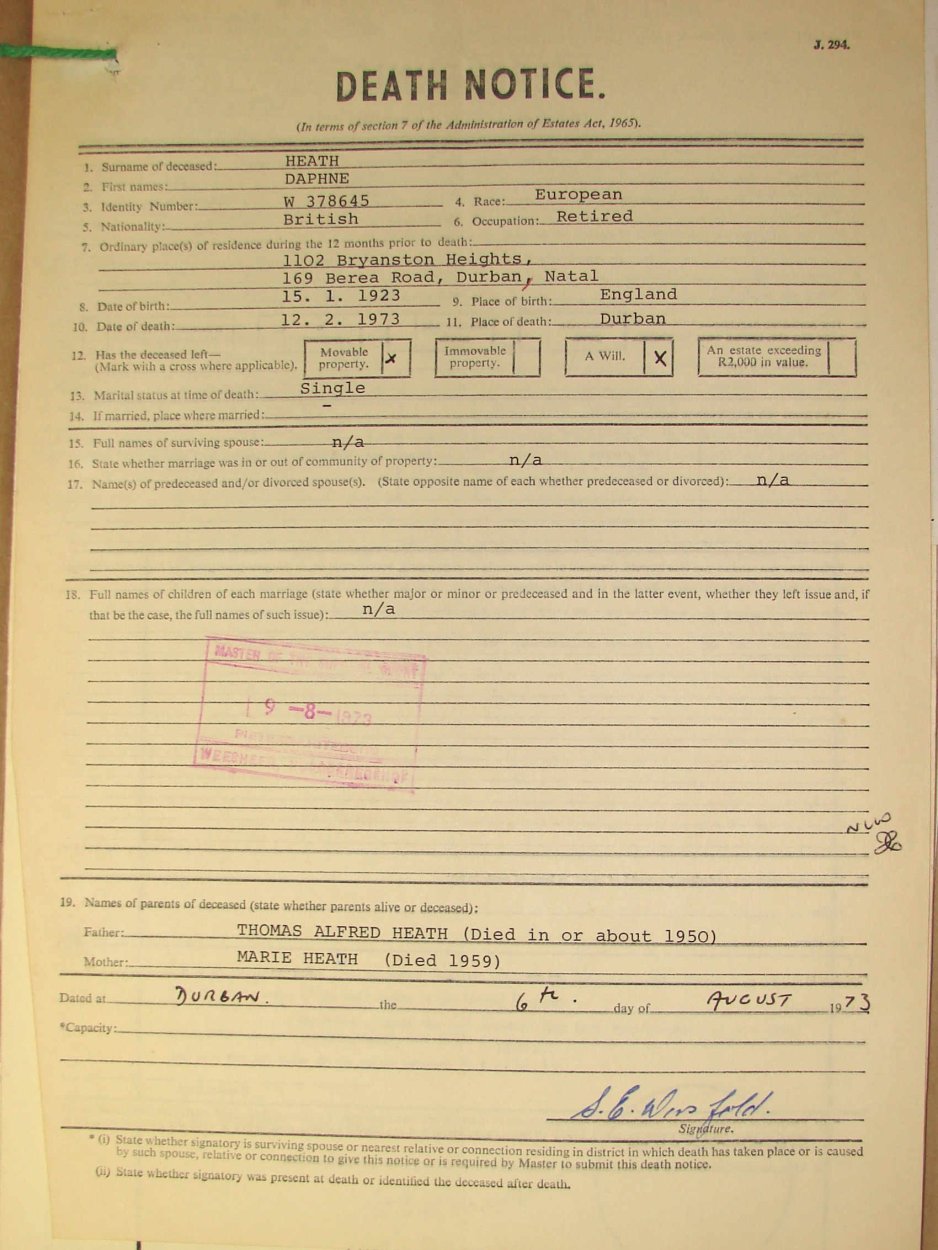 J. 294.
DEATH NOTICE.
(In terms of section 7 of the Administration of Estates Act, 1965).
1. Surname of deceased: HEATH
2. First names: DAPHNE
3. Identity Number: W 378645 4. Race: European
5. Nationality: British 6. Occupation: Retired
7. Ordinary place(s) of residence during the 12 months prior to death:
1102 Bryanston Heights,
169 Berea Road, Durban, Natal
8. Date of birth: 15. 1. 1923 9. Place of birth: England
10. Date of death: 12. 2. 1973 11. Place of death: Durban
12. Has the deceased left— Movable Immovable A Will. An estate exceeding
(Mark with a cross where applicable). property. x property. X R2,000 in value.
13. Marital status at time of death: Single
14. If married, place where married: –
15. Full names of surviving spouse: n/a
16. State whether marriage was in or out of community of property: n/a
17. Name(s) of predeceased and/or divorced spouse(s). (State opposite name of each whether predeceased or divorced): n/a
18. Full names of children of each marriage (state whether major or minor or predeceased and in the latter event, whether they left issue and, if
that be the case, the full names of such issue): n/a
MASTER OF THE
9 –8– 1973
19. Names of parents of deceased (state whether parents alive or deceased):
Father: THOMAS ALFRED HEATH (Died in or about 1950)
Mother: MARIE HEATH (Died 1959)
Dated at DURBAN. the 6th. day of AUGUST 1973
*Capacity:
S. E.
Signature.
* (i) State whether signatory is surviving spouse or nearest relative or connection residing in district in which death has taken place or is caused
by such spouse, relative or connection to give this notice or is required by Master to submit this death notice.
(ii) State whether signatory was present at death or identified the deceased after death.